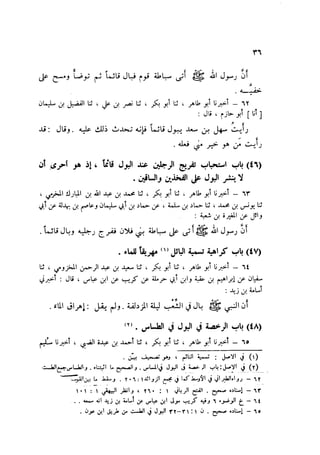 ٣٦
أن رسول الله ﷺ أتى سباطة قوم فبال قائماً ثم توضأ ومسح على
خفيه .
٦٢ – أخبرنا أبو طاهر ، نا أبو بكر ، ثنا نصر بن علي ، ثنا الفضيل بن سليمان
[ نا ] أبو حازم ، قال :
رأيت سهل بن سعد يبول قائماً فإنه تحدث ذلك عليه . وقال : قد
رأيت من هو خير مني فعله .
(٤٦) باب استحباب تفريج الرجلين عند البول قائماً ، إذ هو أحرى أن
لا ينشر البول على الفخذين والساقين .
٦٣ – أخبرنا أبو طاهر ، نا أبو بكر ، ثنا محمد بن عبد الله بن المبارك المخزمي ،
ثنا يونس بن محمد ، ثنا حماد بن سلمة ، عن حماد بن أبي سليمان وعاصم بن بهدلة عن أبي
وائل عن المغيرة بن شعبة :
أن رسول الله ﷺ أتى على سباطة بني فلان ففرج رجليه وبال قائماً .
(٤٧) باب كراهية تسمية البائل (١) مهريقاً للماء .
٦٤ – أخبرنا أبو طاهر ، نا أبو بكر ، ثنا سعيد بن عبد الرحمن المخزومي ، ثنا
سفيان عن إبراهيم بن عقبة وابن أبي حرملة عن كريب عن ابن عباس ، قال : أخبرني
أسامة بن زيد :
أن النبي ﷺ بال في الشعب ليلة المزدلفة . ولم يقل : إهراق الماء .
(٤٨) باب الرخصة في البول في الطساس . (٢)
٦٥ – أخبرنا أبو طاهر ، نا أبو بكر ، ثنا أحمد بن عبدة الضبي ، أخبرنا سليم
(١) في الأصل : تسمية النائم ، وهو تصحيف بيّن .
(٢) في الأصل : باب الرخصة في البول في الماس . والصحيح ما أثبتناه . والطساس جمع الطست
٦٢ – رواه الطبراني في الأوسط كما في مجمع الزوائد ١ : ٢٠٦ .
٦٣ – إسناده صحيح . الفتح الرباني ١ : ٢٦٠ ، وانظر البيهقي ١ : ١٠١
٦٤ – خ الوضوء ٦ وفيه كريب مولى ابن عباس عن أسامة بن زيد أنه سمعه ...
٦٥ – إسناده صحيح . ن ١ : ٣٢-٣١ البول في الطست من طريق ابن عون .